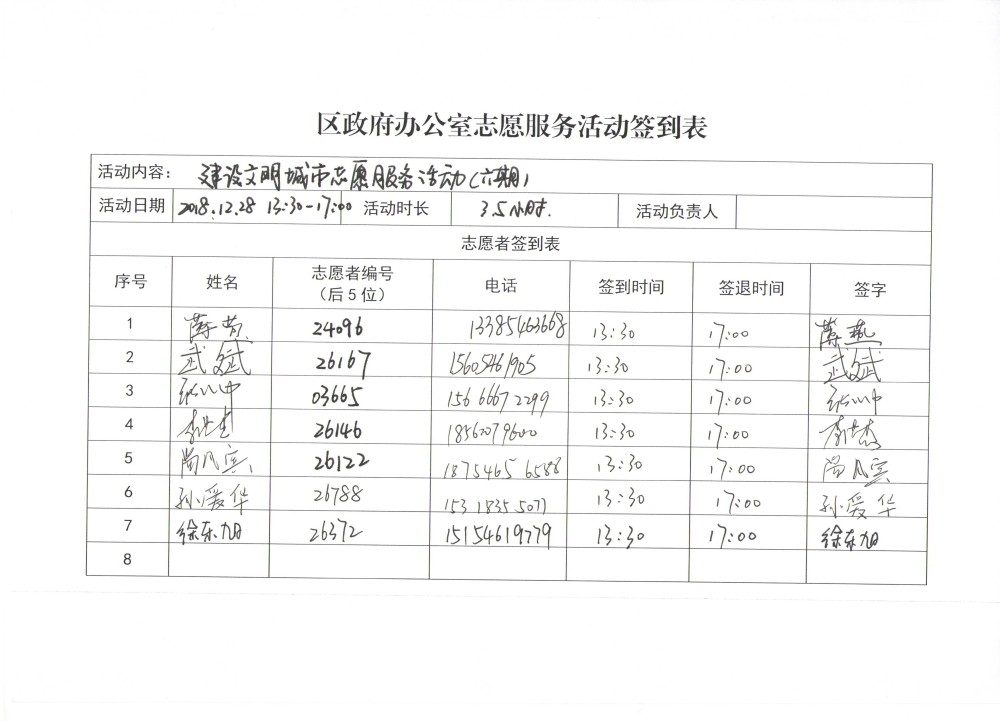 区政府办公室志愿服务活动签到表
活动内容： 建设文明城市志愿服务活动(六期)
活动日期 2018.12.28 13:30-17:00 活动时长 3.5小时. 活动负责人
志愿者签到表
序号 姓名 志愿者编号（后5位） 电话 签到时间 签退时间 签字
1 24096 13385463668 13:30 17:00
2 武斌 26167 15605461905 13:30 17:00 武斌
3 03665 15666672299 13:30 17:00
4 26146 18560079600 13:30 17:00 李世杰
5 尚凡宾 26122 18754656588 13:30 17:00 尚凡宾
6 孙爱华 26788 15318355077 13:30 17:00 孙爱华
7 徐东旭 26372 15154619779 13:30 17:00 徐东旭
8